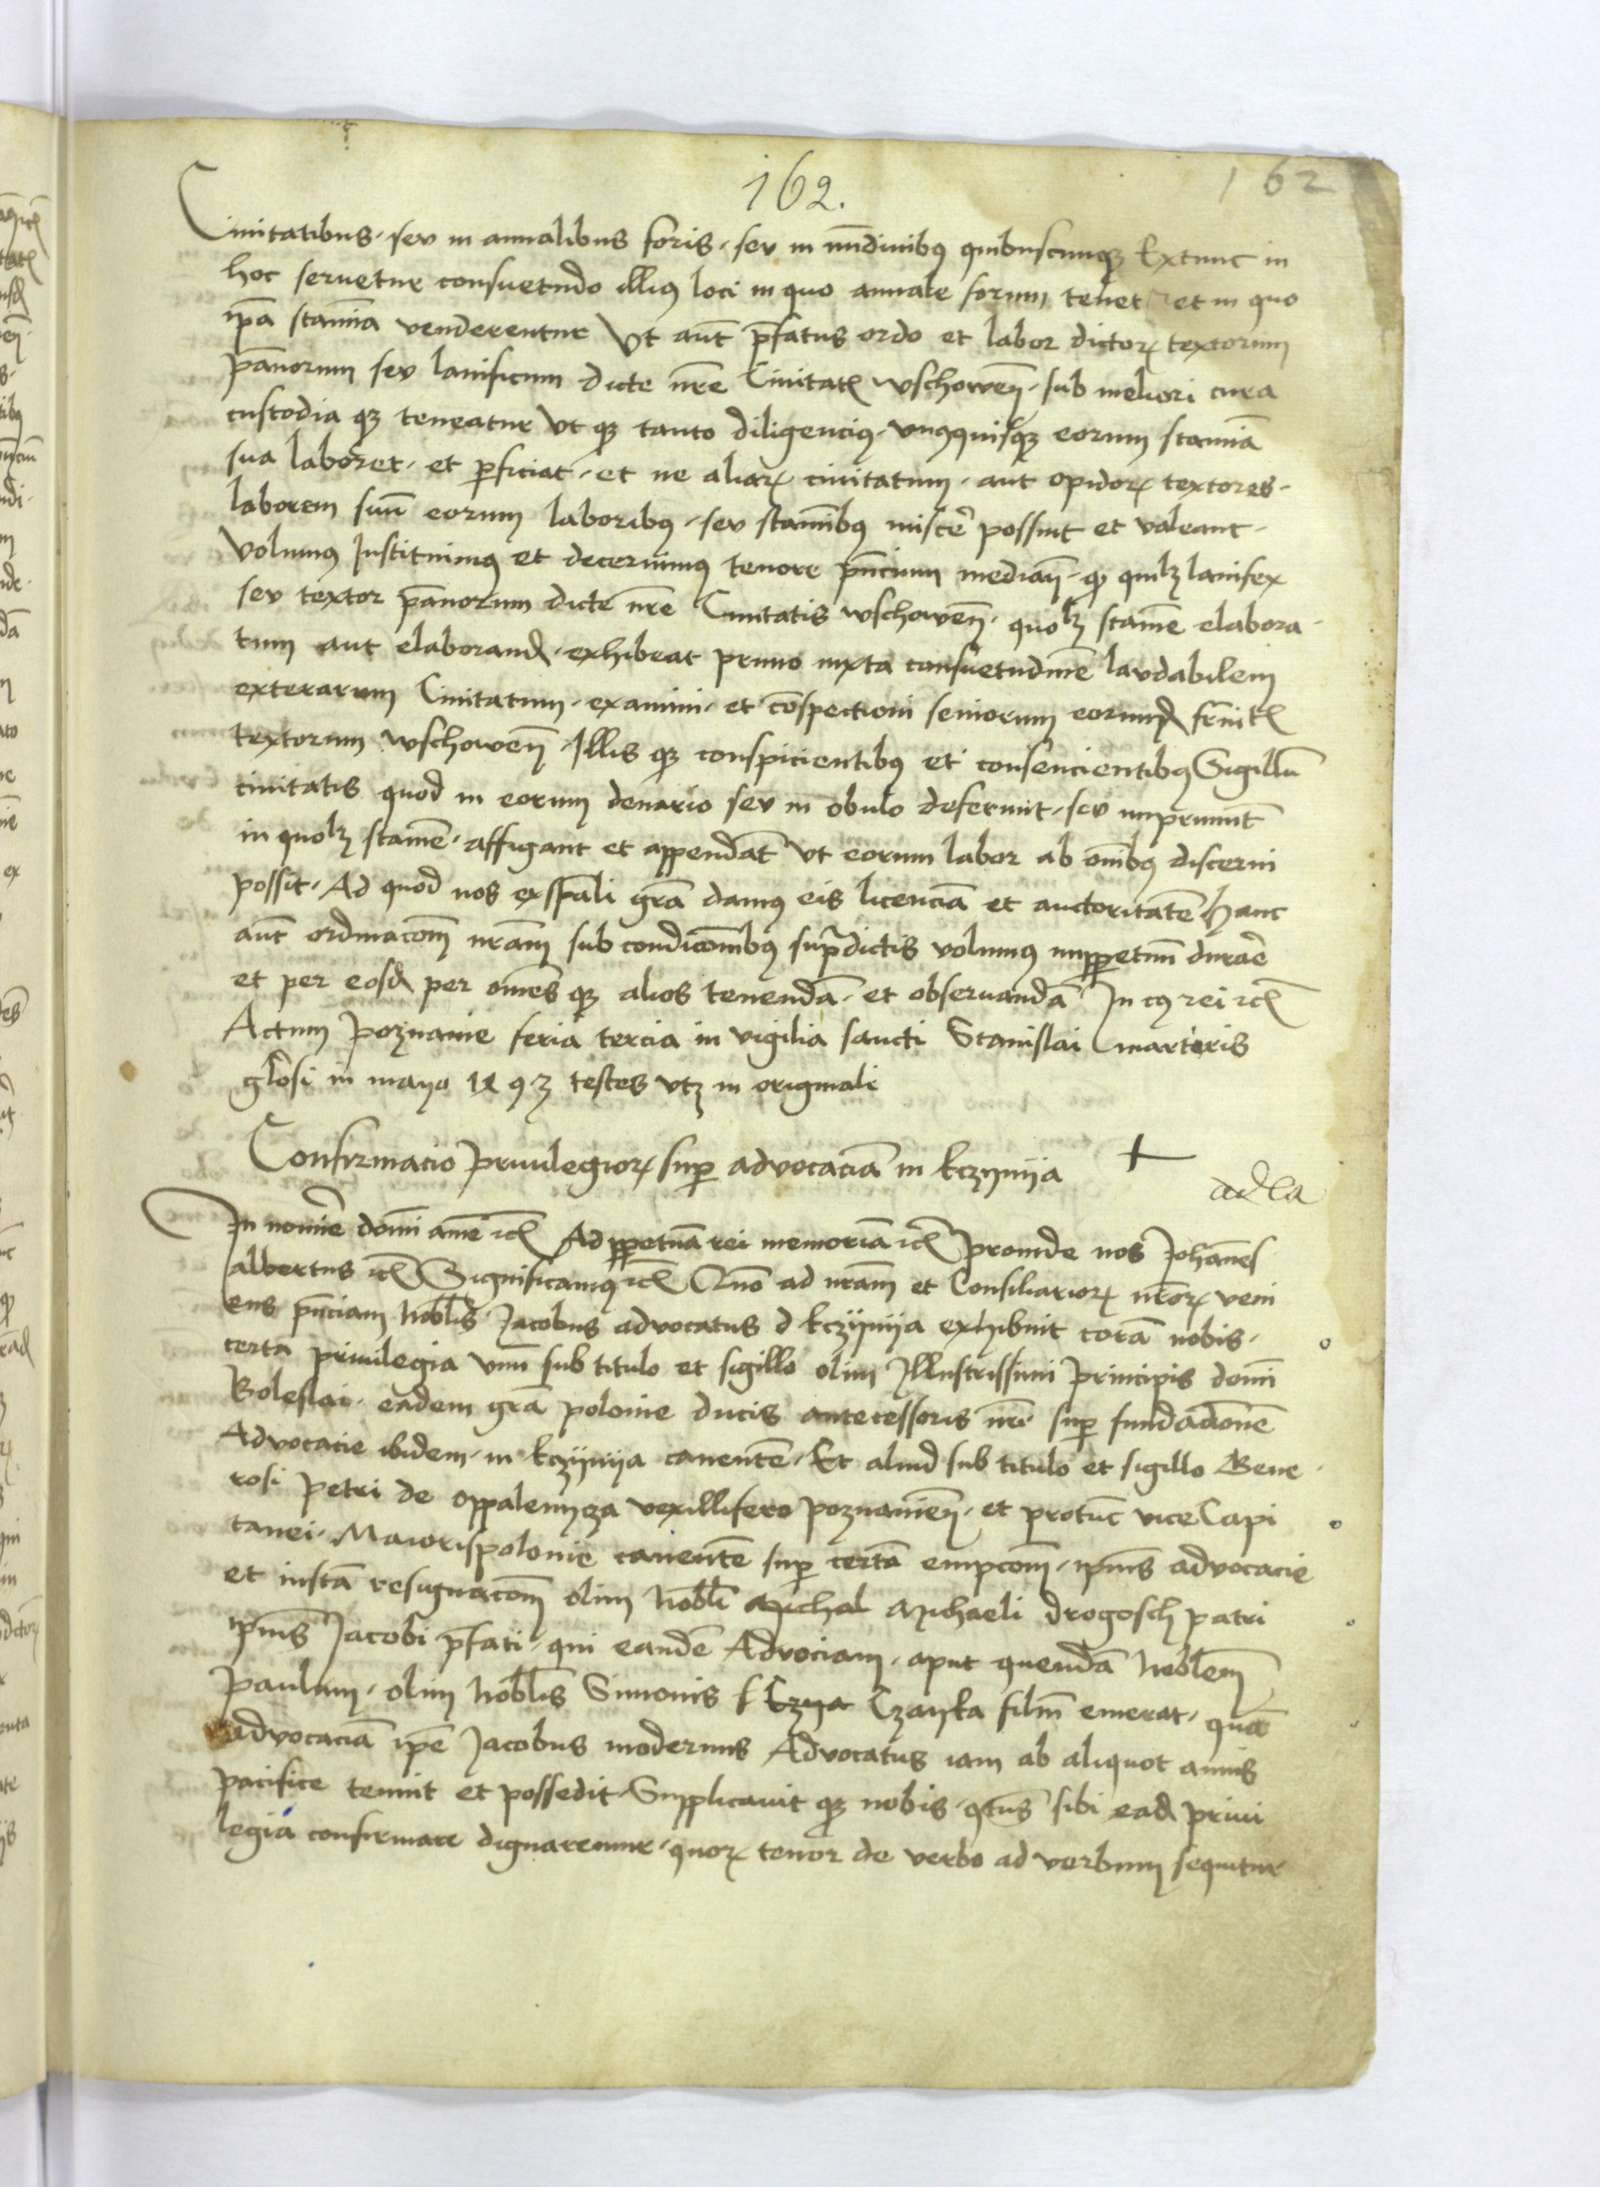 162.
162
Ciuitatibus · seu in annalibus foris · seu in nūdinibus quibuscunque Extunc in
hoc seruetur consuetudo illius loci in quo annale forum tenet et in quo
ipā stamīa venderentur Vt aūt p̄fatus ordo et labor dictorꝝ textorum
p̄anorum seu lanificum dicte nr̄e Ciuitatꝭ wschoweñ · sub meliori cura
custodia qꝫ teneatur Vt qꝫ tanto diligencius · vnusquisqꝫ eorum stamīa
sua laboret · et perficiat · et ne aliarꝝ ciuitatum · aut opidorꝝ textores ·
laborem suū eorum laboribus · seu stamībus miscēr possint et valeant ·
Volumus Instituimus et decernimus tenore pn̄cium mediañ · qꝫ quilꝫ lanifex
seu textor p̄anorum dicte nr̄e Ciuitatis wschoweñ · quolꝫ stamē elabora ·
tum aut elaborand · exhibeat primo iuxta consuetudinē laudabilem
exterarum Ciuitatum · examini · et cōspectioni seniorum eorund frn̄itꝭ
textorum wschoweñ · Illis qꝫ conspicientibus et consencientibus Sigillū
ciuitatis quod in eorum denario seu in obulo deferunt · seu imprimūt
in quolꝫ stamē · affigant et appendāt Vt eorum labor ab oīnibus discerni
possit · Ad quod nos ex sp̄ali grā damus eis licenciā et auctoritatē Hanc
aūt ordinacōm nrām sub condicōnibus supradictis volumus imppetuū durarē
et per eosd per omēs qꝫ alios tenendā · et obseruandā In cuius rei ꝛcꝭ
Actum poznanie feria tercia in vigilia sancti Stanislai martiris
glōsi in mayo 1493 testes vtꝫ in originali
Confirmacio priuilegiorꝝ super aduocaciā in kczynya +
ad la
In noīe domī amē ꝛcꝭ Ad ppetuā rei memoriā ꝛcꝭ proinde nos Johānes
albertus ꝛcꝭ Significamus ꝛcꝭ Quō ad nrām et Consiliariorꝝ nrōrꝝ veni
ens pn̄ciam nobl̄is Jacobus aduocatus d kczynya exhibuit corā nobis ·
certa priuilegia vnū sub titulo et sigillo olim Illustrissimi principis domī
Boleslai · eadem grā polonie ducis antecessoris nrī super fundacionē
Aduocacie ibidem · in kczynya canentē · Et aliud sub titulo et sigillo Gene ·
rosi petri de oppalenycza vexillifero poznanieñ · et protūc vice Capi
tanei · Maiorispolonie canentē super certā empcōm · ipīus aduocacie
et iustā resignacōm olim nobl̄i Michal Michaeli drogosch patri
ipīus Jacobi p̄fati · qui eandē Aduociam · aput quendā nobl̄em
paulum · olim nobl̄is Simonis f Czya Czayka filiū emerat · quā
aduocaciā ipē Jacobus modernus Aduocatus iam ab aliquot annis
pacifice tenuit et possedit · Supplicauit qꝫ nobis · qtūs sibi ead priui
legia confirmare dignaremur · quorꝝ tenor de verbo ad verbum sequitur